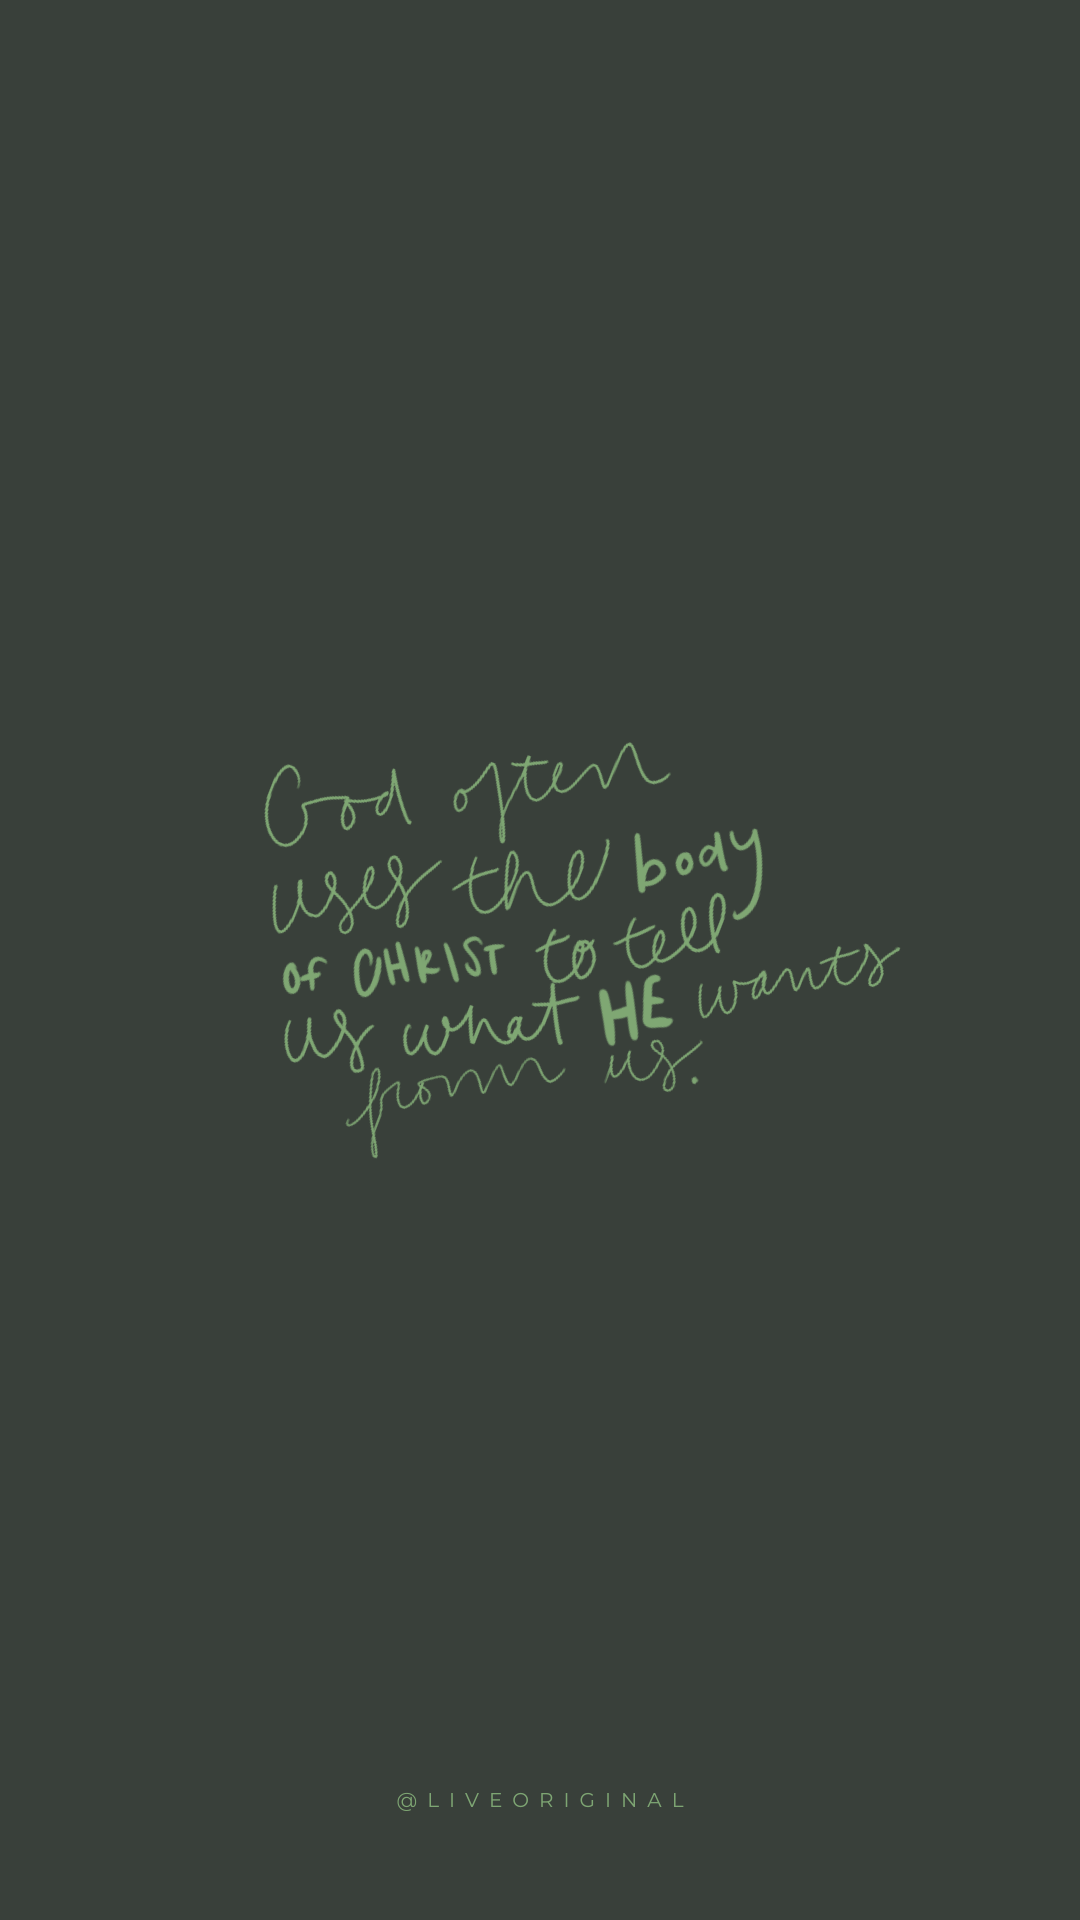 God often
uses the body
of CHRIST to tell
us what HE wants
from us.
@LIVEORIGINAL